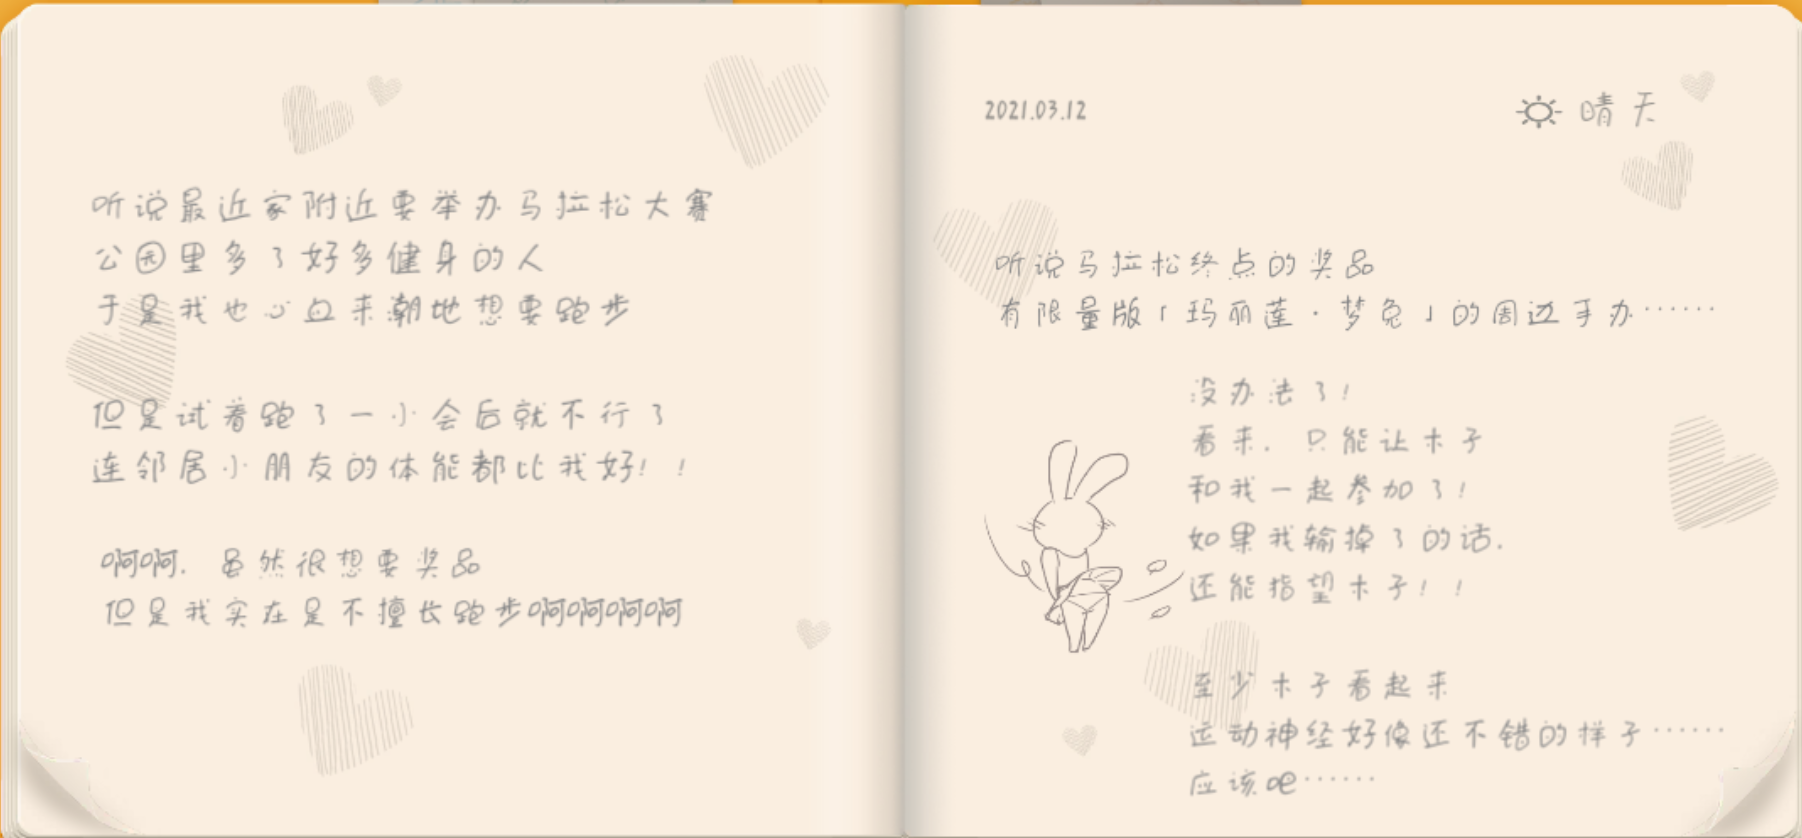 听说最近家附近要举办马拉松大赛
公园里多了好多健身的人
于是我也心血来潮地想要跑步
但是试着跑了一小会后就不行了
连邻居小朋友的体能都比我好！！
啊啊. 虽然很想要奖品
但是我实在是不擅长跑步啊啊啊啊
2021.03.12
晴天
听说马拉松终点的奖品
有限量版「玛丽莲·梦兔」的周边手办……
没办法了！
看来. 只能让木子
和我一起参加了！
如果我输掉了的话.
还能指望木子！！
至少木子看起来
运动神经好像还不错的样子……
应该吧……